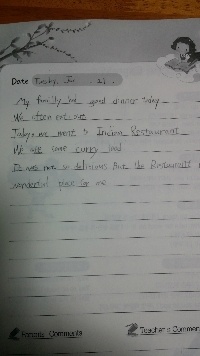 Date Tuesday,
My family had good dinner today
We often eat out
Today, we went to Indian Restaurant
We ate some curry food
It was not so delicious But the Restaurant
wonderful place for me
Parent's Comments
Teacher's Commen